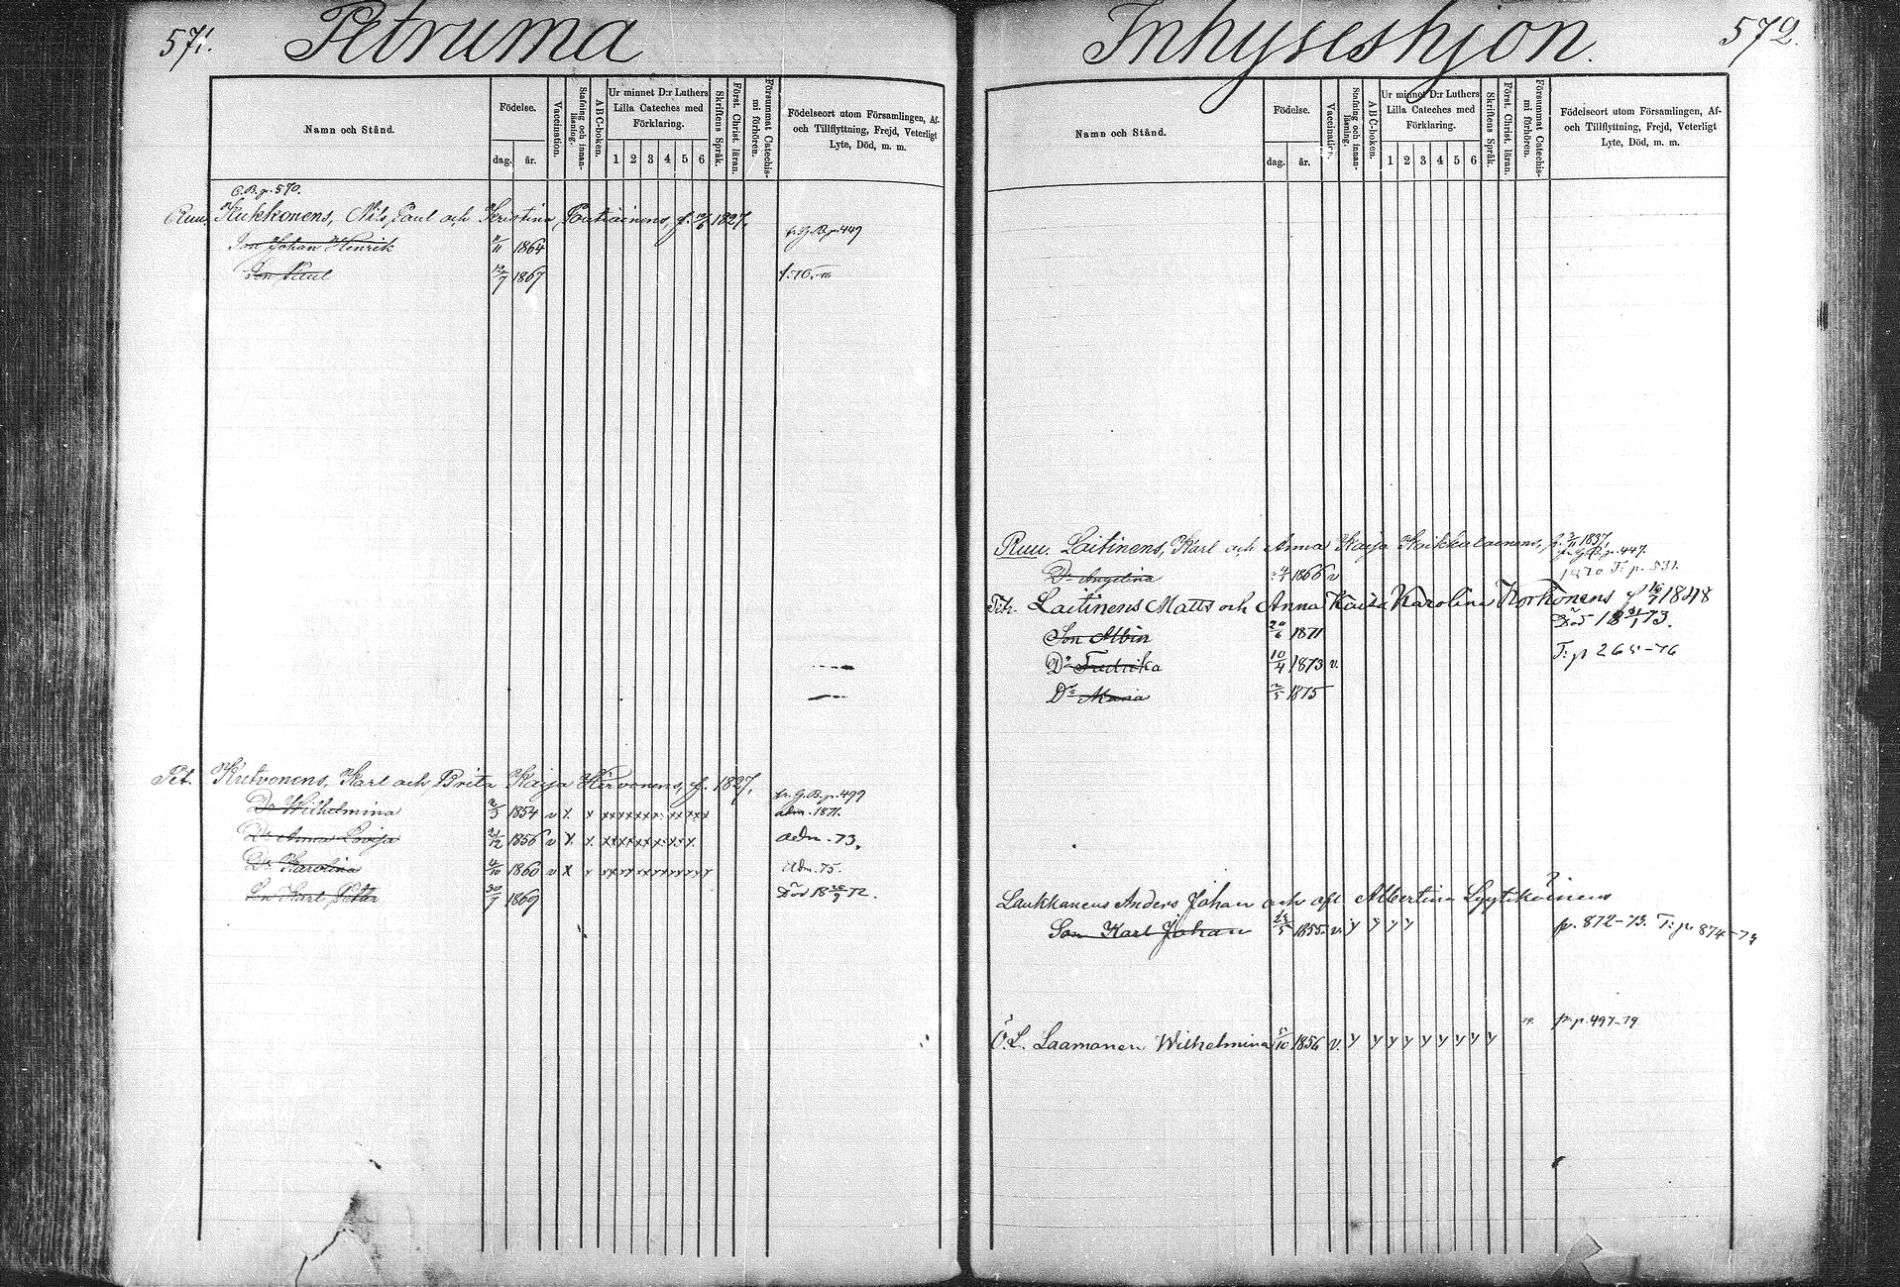 571.
Petruma
Namn och Stånd.
Födelse.
dag.
år.
Vaccination.
Stafning och innan-
läsning.
ABC-boken.
Ur minnet D:r Luthers
Lilla Cateches med
Förklaring.
1 2 3 4 5 6
Skriftens Språk.
Först. Christ. läran.
Försummat Catechis-
mi förhören.
Födelseort utom Församlingen, Af-
och Tillflyttning, Frejd, Veterligt
Lyte, Död, m. m.
C.B.p. 570.
Ruu. Kukkonens, Nils Paul och Kristina Rautiainens, f. 1827.
Son Johan Henrik 1864 fr. G.B.p. 449
Son Paul 1867
Pet. Kutvonens, Karl och Brita Kaija Hirvonens, f. 1827.
fr. G.B.p. 499
Dr Wilhelmina 1854 v adm. 1871.
Dr Anna Lovisa 1856 v adm. 73.
Dr Karolina 4/10 1860 v adm. 75.
Son Karl Petter 30/7 1869 Död 72.
Inhyseshjon.
572.
Namn och Stånd.
Födelse.
dag.
år.
Vaccination.
Stafning och innan-
läsning.
ABC-boken.
Ur minnet D:r Luthers
Lilla Cateches med
Förklaring.
1 2 3 4 5 6
Skriftens Språk.
Först. Christ. läran.
Försummat Catechis-
mi förhören.
Födelseort utom Församlingen, Af-
och Tillflyttning, Frejd, Veterligt
Lyte, Död, m. m.
Ruu. Laitinens, Karl och Anna Kaija f. 1837.
fr. G.B.p. 447.
Dr Angelina 1866 v 1870 T: p. 531.
Laitinens Matts och Anna Kaisa Karolina Korhonens f 16/7 1848
Son Albin 20/6 1871 Död 18 31/1 73.
Dr Fredrika 10/4 1873 v. T: p 265-76
Dr Maria 2/5 1875
Laukkanens Anders Johan och Albertina Lyytikäinens
Son Karl Johan 1855. v. y y y y p. 872-73. T: p. 874-74
Ö.L. Laamanen Wilhelmina 5/10 1856 v. y y y y y y y y y fr. p. 497-79